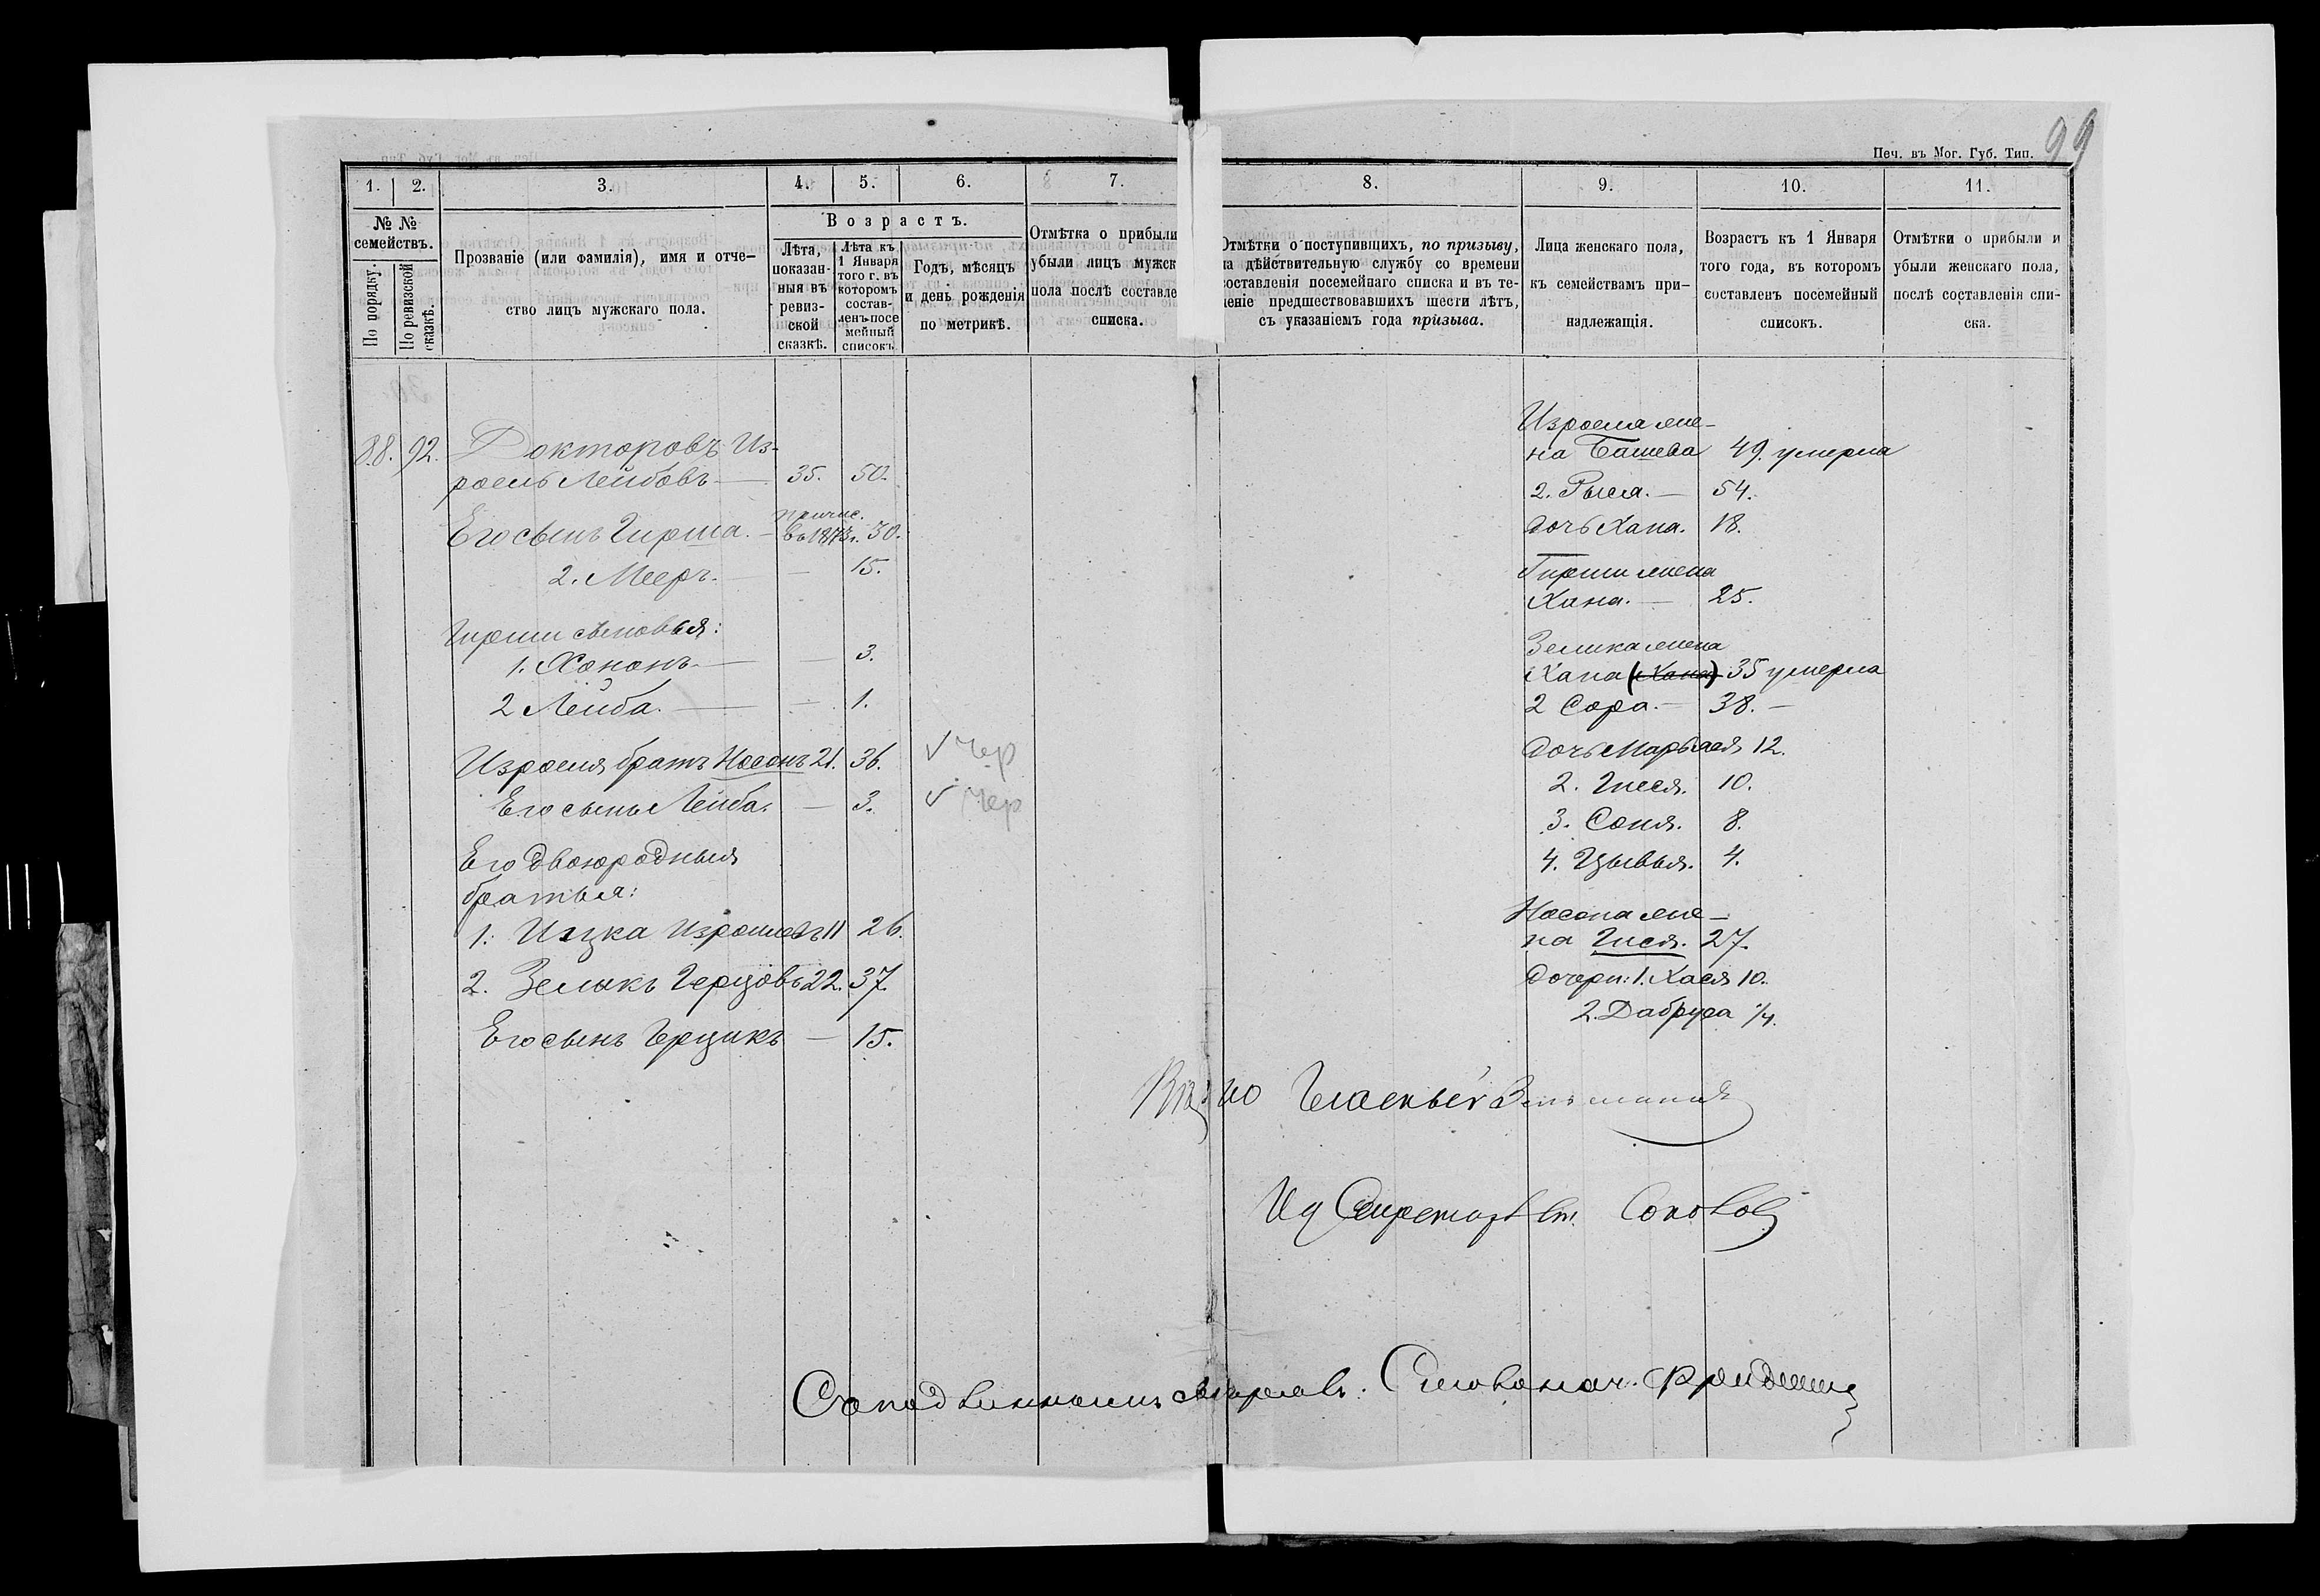 99
Печ. въ Мог. Губ. Тип.
1. 2. 3. 4. 5. 6. 7. 8. 9. 10. 11.
№ №
семействъ.
По порядку.
По ревизской
сказкѣ.
Прозваніе (или фамилія), имя и отче-
ство лицъ мужскаго пола.
Возрастъ.
Лѣта,
показан-
ныя въ
ревиз-
ской
сказкѣ.
Лѣта къ
1 Января
того г. въ
которомъ
состав-
ленъ посе
мейный
списокъ.
Годъ, мѣсяцъ
и день рожденія
по метрикѣ.
Отмѣтка о прибыли
убыли лицъ мужск
пола послѣ составле
списка.
Отмѣтки о поступившихъ, по призыву,
на дѣйствительную службу со времени
составленія посемейнаго списка и въ те-
ченіе предшествовавшихъ шести лѣтъ,
съ указаніемъ года призыва.
Лица женскаго пола,
къ семействамъ при-
надлежащія.
Возрастъ къ 1 Января
того года, въ которомъ
составленъ посемейный
списокъ.
Отмѣтки о прибыли и
убыли женскаго пола,
послѣ составленія спи-
ска.
88. 92. Докторовъ Из-
роель Лейбовъ — 35. 50.
Его сынъ Гирша. — причис. въ 1873 г. 30.
2. Мееръ. — 15.
Гирши сыновья:
1. Хононъ — 3.
2 Лейба. — 1.
Израеля братъ Носонъ 21. 36. √ Чер
Его сынъ Лейба. — 3. √ Чер
Его двоюродныя
братья:
1. Ицка Израилевъ 11 26.
2. Зеликъ Герцовъ 22. 37.
Его сынъ Герцикъ — 15.
Израеля же-
на Башева 49. умерла
2. Рыся. — 54.
дочь Хана. 18.
Гирши жена
Хана. — 25.
Зелика жена
Хана (Хана) 35 умерла
2 Сора. — 38. —
дочь Марьяся 12.
2. Гнеся. 10.
3. Соня. 8.
4. Цывья. 4.
Носона же-
на Гнеся. 27.
дочери: 1. Хася 10.
2. Дабруса 1/4.
Гласный
Ид Секретаря
Соколов
Съ подлиннымъ вѣрно: Столонач. Фридманъ